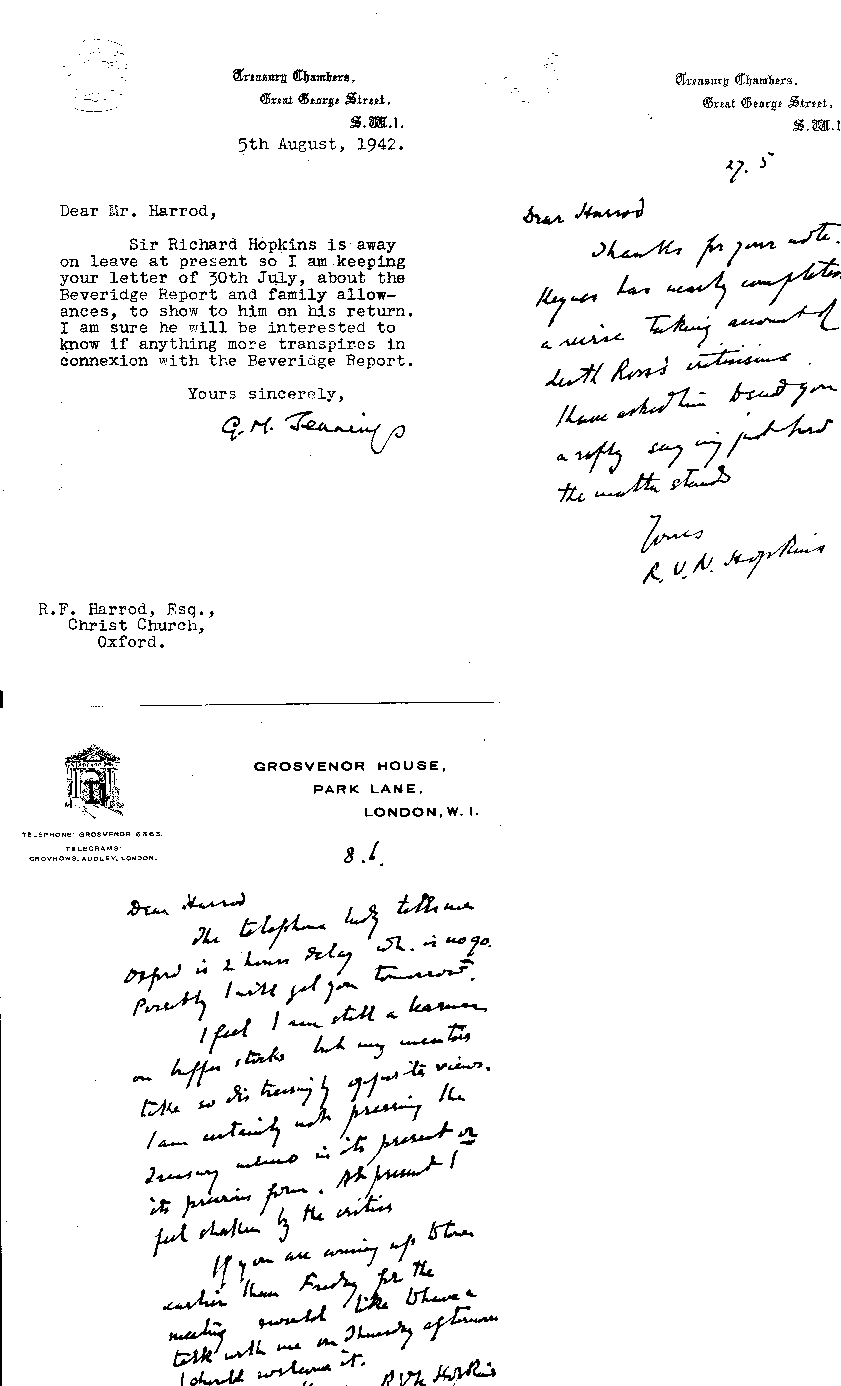 Treasury Chambers,
Great George Street,
S.W.1.
5th August, 1942.
Dear Mr. Harrod,
Sir Richard Hopkins is away
on leave at present so I am keeping
your letter of 30th July, about the
Beveridge Report and family allow-
ances, to show to him on his return.
I am sure he will be interested to
know if anything more transpires in
connexion with the Beveridge Report.
Yours sincerely,
G.M. Jennings
R.F. Harrod, Esq.,
Christ Church,
Oxford.
Treasury Chambers,
Great George Street,
S.W.1
27.5
Dear Harrod
Thanks for your note.
Keynes has nearly completed
a revise taking account of
Leith Ross's criticisms
I have asked him to send you
a reply saying just how
the matter stands
Yours
R.V.N. Hopkins
GROSVENOR HOUSE,
PARK LANE,
LONDON, W.1.
TELEPHONE: GROSVENOR 6363.
TELEGRAMS:
GROVHOWS, AUDLEY, LONDON.
8.6.
Dear Harrod
The telephone lady tells me
Oxford is 2 hours delay wh. is no go.
Possibly I will get you tomorrow.
I feel I am still a learner
on buffer stocks but my mentors
take so distressingly opposite views.
I am certainly not pressing the
Treasury memo in its present or
its previous form. At present I
feel shaken by the critics
If you are coming up to town
earlier than Friday for the
meeting & would like to have a
talk with me on Thursday afternoon
I should welcome it.
RVN Hopkins